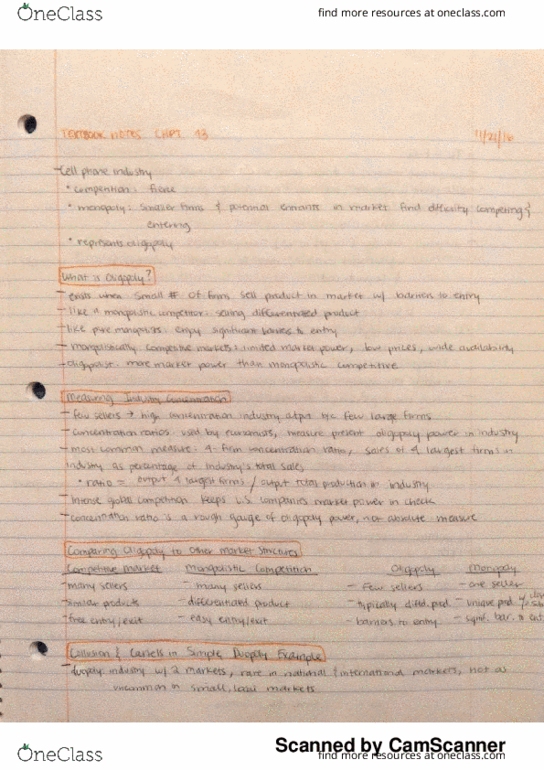 OneClass
find more resources at oneclass.com
TEXTBOOK NOTES CHPT 13
11/22/16
- Cell phone industry
• competition: fierce
• monopoly: smaller firms & potential entrants in market find difficulty competing &
entering
• represents oligopoly
What is Oligopoly?
- exists when small # of firms sell product in market w/ barriers to entry
- like a monopolistic competitor: selling differentiated product
- like pure monopolists: enjoy significant barriers to entry
- monopolistically competitive markets: limited market power, low prices, wide availability
- oligopolist: more market power than monopolistic competitive
Measuring Industry Concentration
- few sellers → high concentration industry output b/c few large firms
- concentration ratios: used by economists, measure present oligopoly power in industry
- most common measure: 4-firm concentration ratio, sales of 4 largest firms in
industry as percentage of industry's total sales
• ratio = output 4 largest firms / output total production in industry
- Intense global competition keeps U.S. companies market power in check
- concentration ratio is a rough gauge of oligopoly power, not absolute measure
Comparing Oligopoly to Other Market Structures
Competitive Market Monopolistic Competition Oligopoly Monopoly
- many sellers - many sellers - Few sellers - one seller
- similar products - differentiated product - typically diffd. prod. - unique prod. w/o
- free entry/exit - easy entry/exit - barriers to entry - signif. bar. to
Collusion & Cartels in Simple Duopoly Example
- Duopoly: industry w/ 2 markets, rare in national & international markets, not as
uncommon in small, local markets
Scanned by CamScanner
OneClass
find more resources at oneclass.com